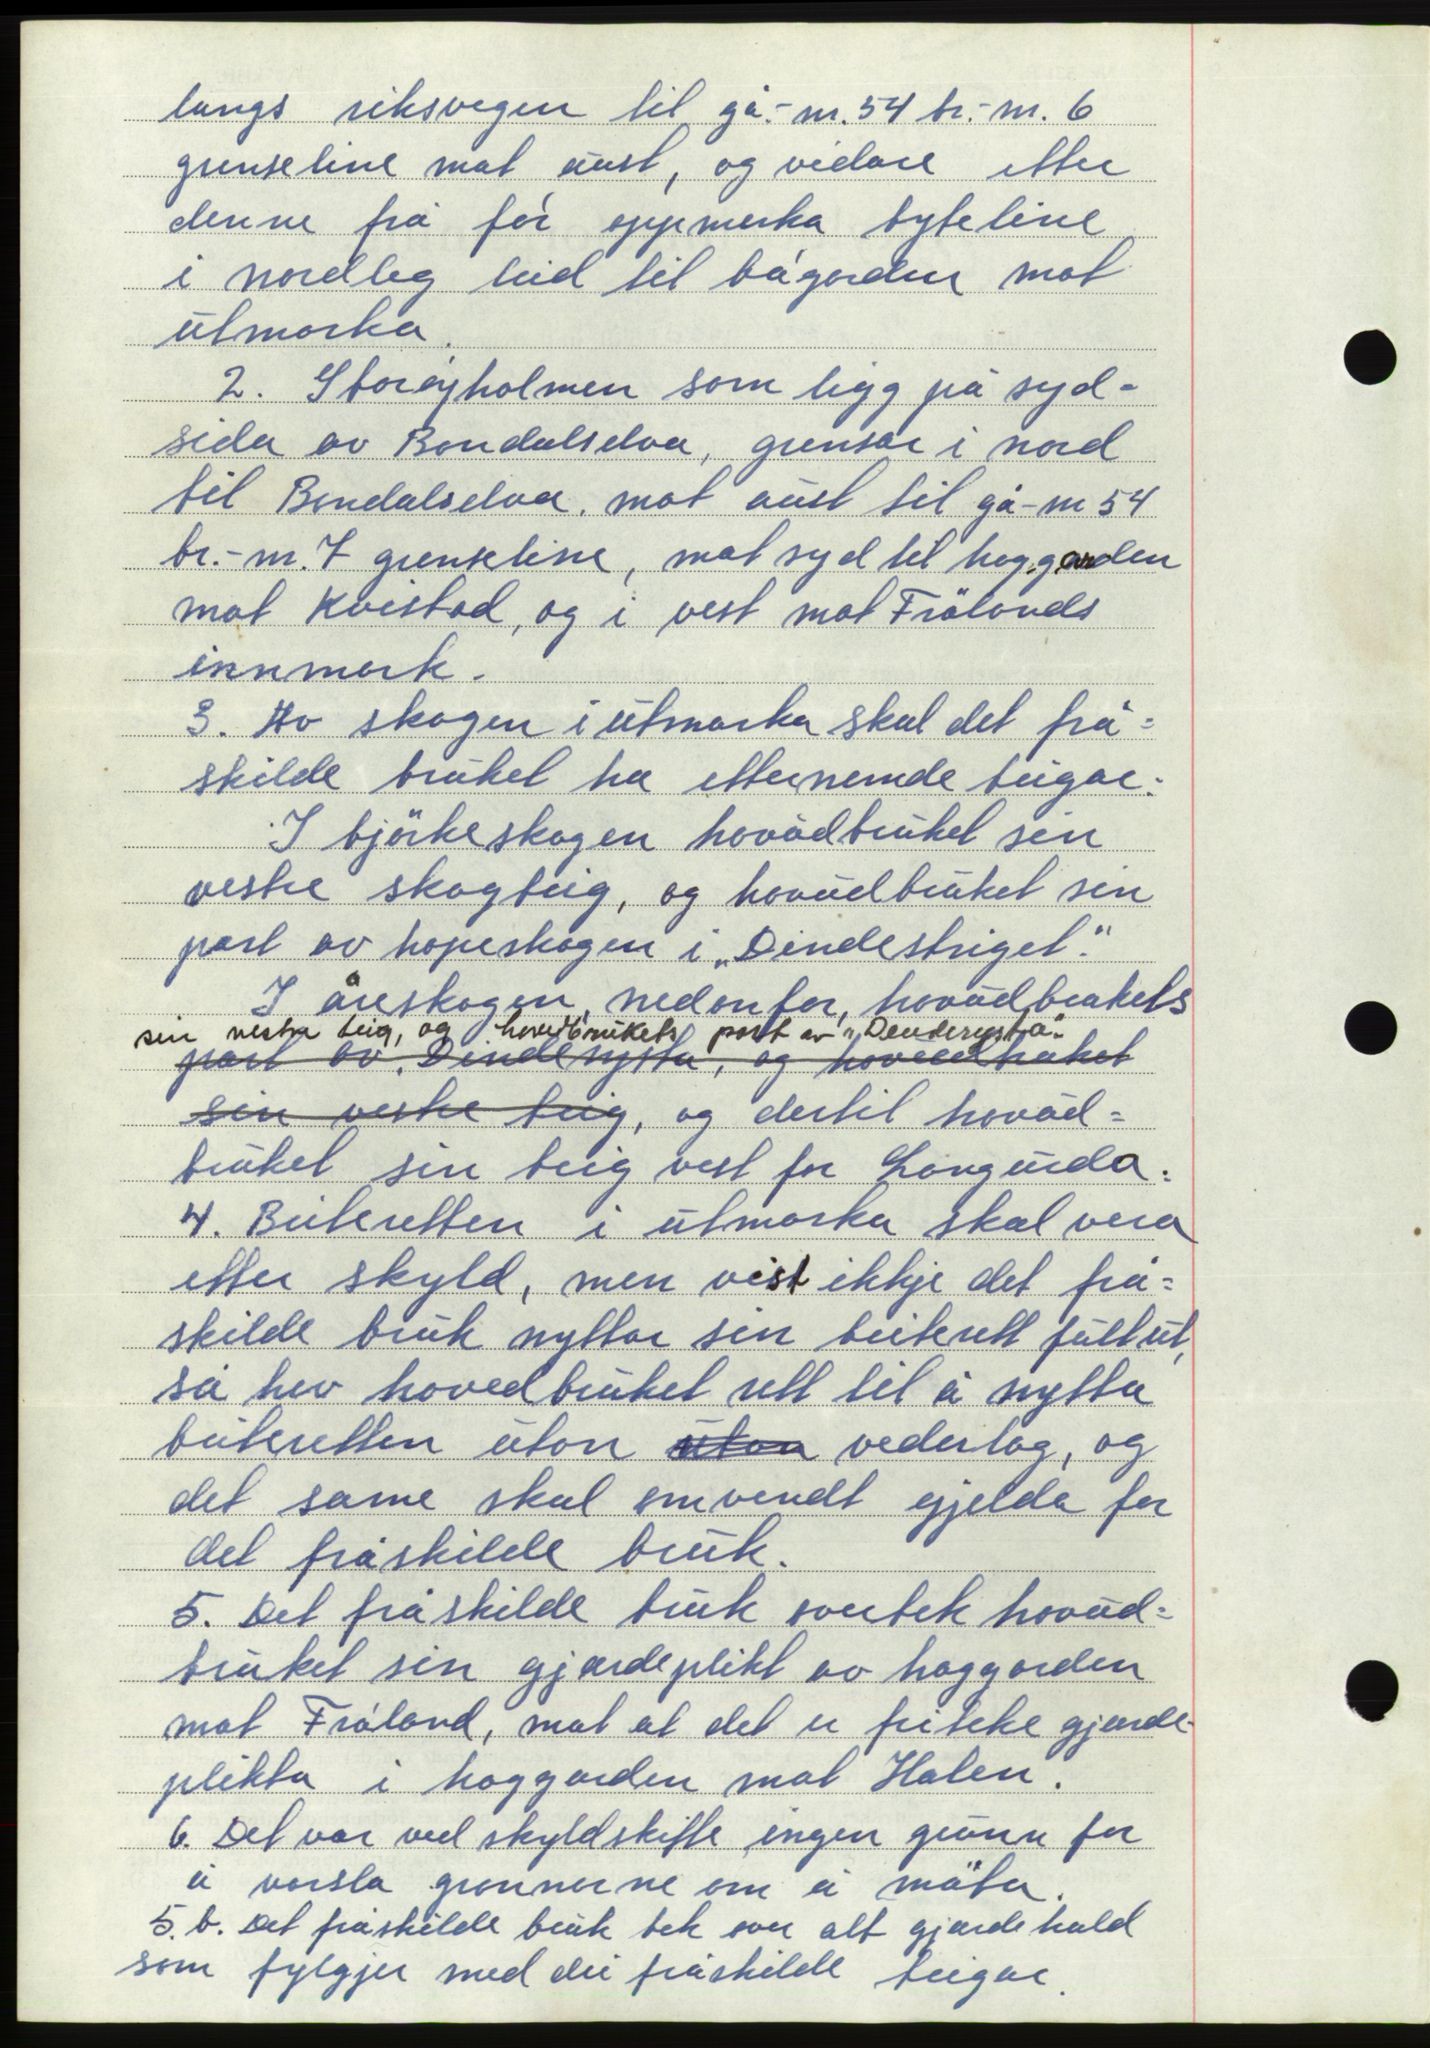 langs riksvegen til gå.-nr. 54 br.-nr. 6
grenseline mot aust, og vidare etter
denne frå før oppmerka byteline
i nordleg leid til bøgarden mot
utmarka.
2. Storøyholmen som ligg på syd-
sida av Bondalselva, grensar i nord
til Bondalselva, mot aust til gå-nr 54
br.-nr. 7 grenseline, mot syd til haggarden
mot Kvistad, og i vest mot Frølands
innmark.
3. Av skogen i utmarka skal det frå=
skilde bruket ha etternemde teigar:
I bjørkeskogen hovudbruket sin
vestre skogteig, og hovudbruket sin
part av hopeskogen i „Dindestriget".
I øreskogen, nedanfor, hovudbrukets
sin vestra teig, og hovedbrukets part av „Dendesysta"
part av „Dindesysta, og hovudbruket
sin vestre teig, og dertil hovud=
bruket sin teig vest for Langurda.
4. Beiteretten i utmarka skal vera
etter skyld, men vist ikkje det frå=
skilde bruk nyttar sin beiterett fullt ut,
så hev hovedbruket rett til å nytta
beiteretten utan utan vederlag, og
det same skal omvendt gjelda for
det fråskilde bruk.
5. Det fråskilde bruk overtek hovud=
bruket sin gjærdeplikt av haggarden
mot Frøland, mot at det er friteke gjærde-
plikta i haggarden mot Halen.
6. Det var ved skyldskifte ingen grunn for
å varsla grannarne om å møta.
5.b. Det fråskilde bruk tek over alt gjærdehald
som fylgjer med dei fråskilde teigar.